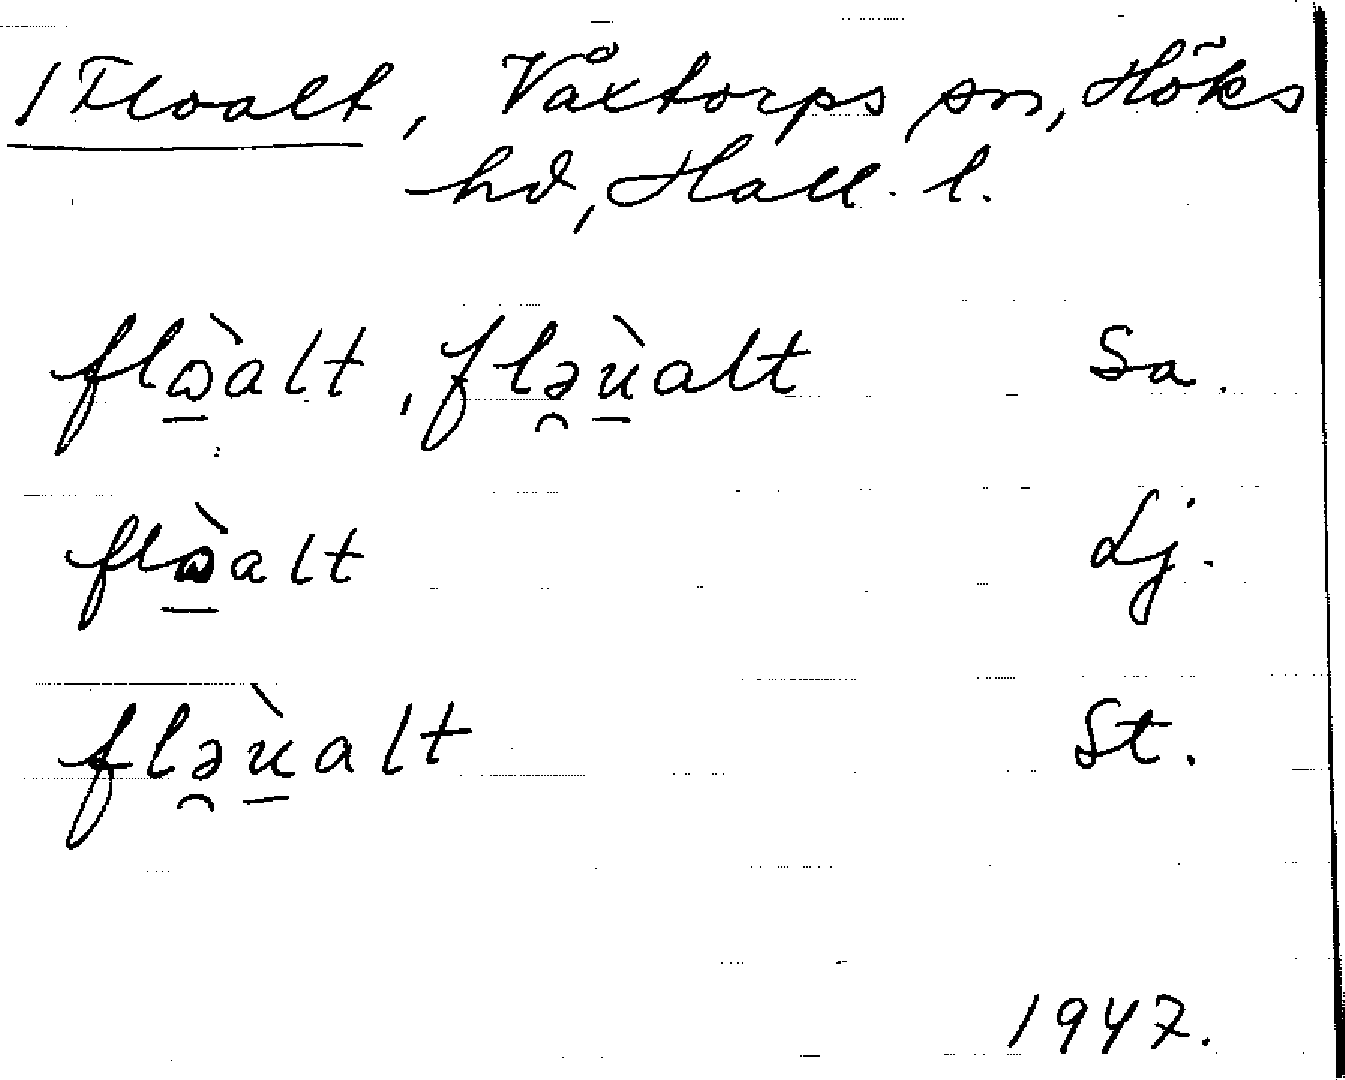 1 Floalt, Våxtorps sn, Höks
hd, Hall. l.
flɷ̠̀alt, flə̯ù̠alt Sa.
flɷ̠̀alt Lj.
flə̯ù̠alt St.
1947.